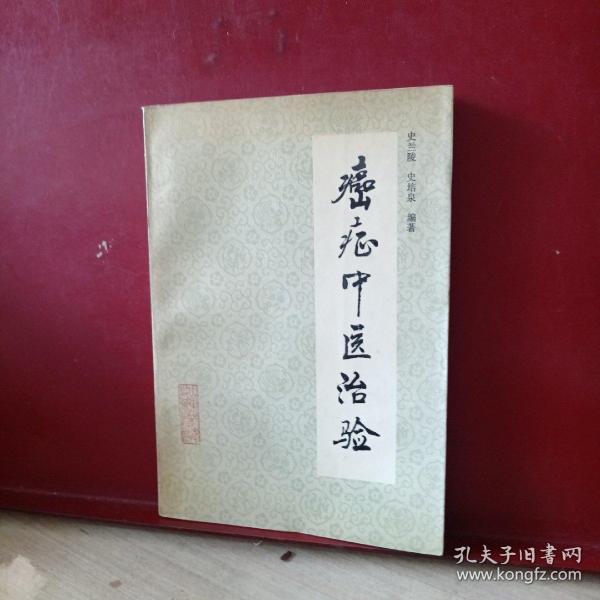 史兰陵 史培泉 编著
癌症中医治验
孔夫子旧書网
www.kongfz.com